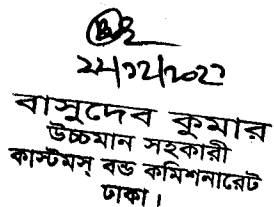 ২২/১২/২০২১
বাসুদেব কুমার
উচ্চমান সহকারী
কাস্টমস্ বন্ড কমিশনারেট
ঢাকা।